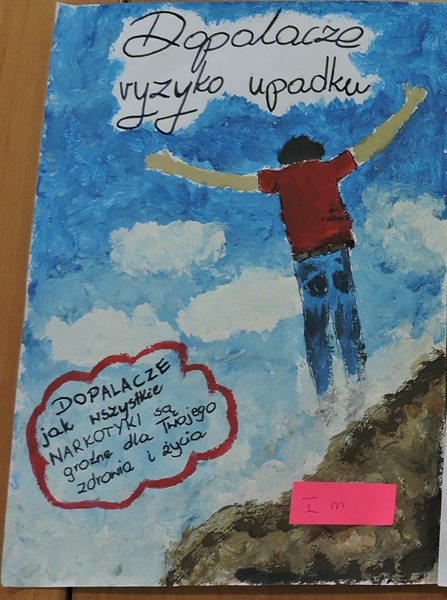 Dopalacze
ryzyko upadku
DOPALACZE
jak wszystkie
NARKOTYKI są
groźne dla Twojego
zdrowia i życia
I m